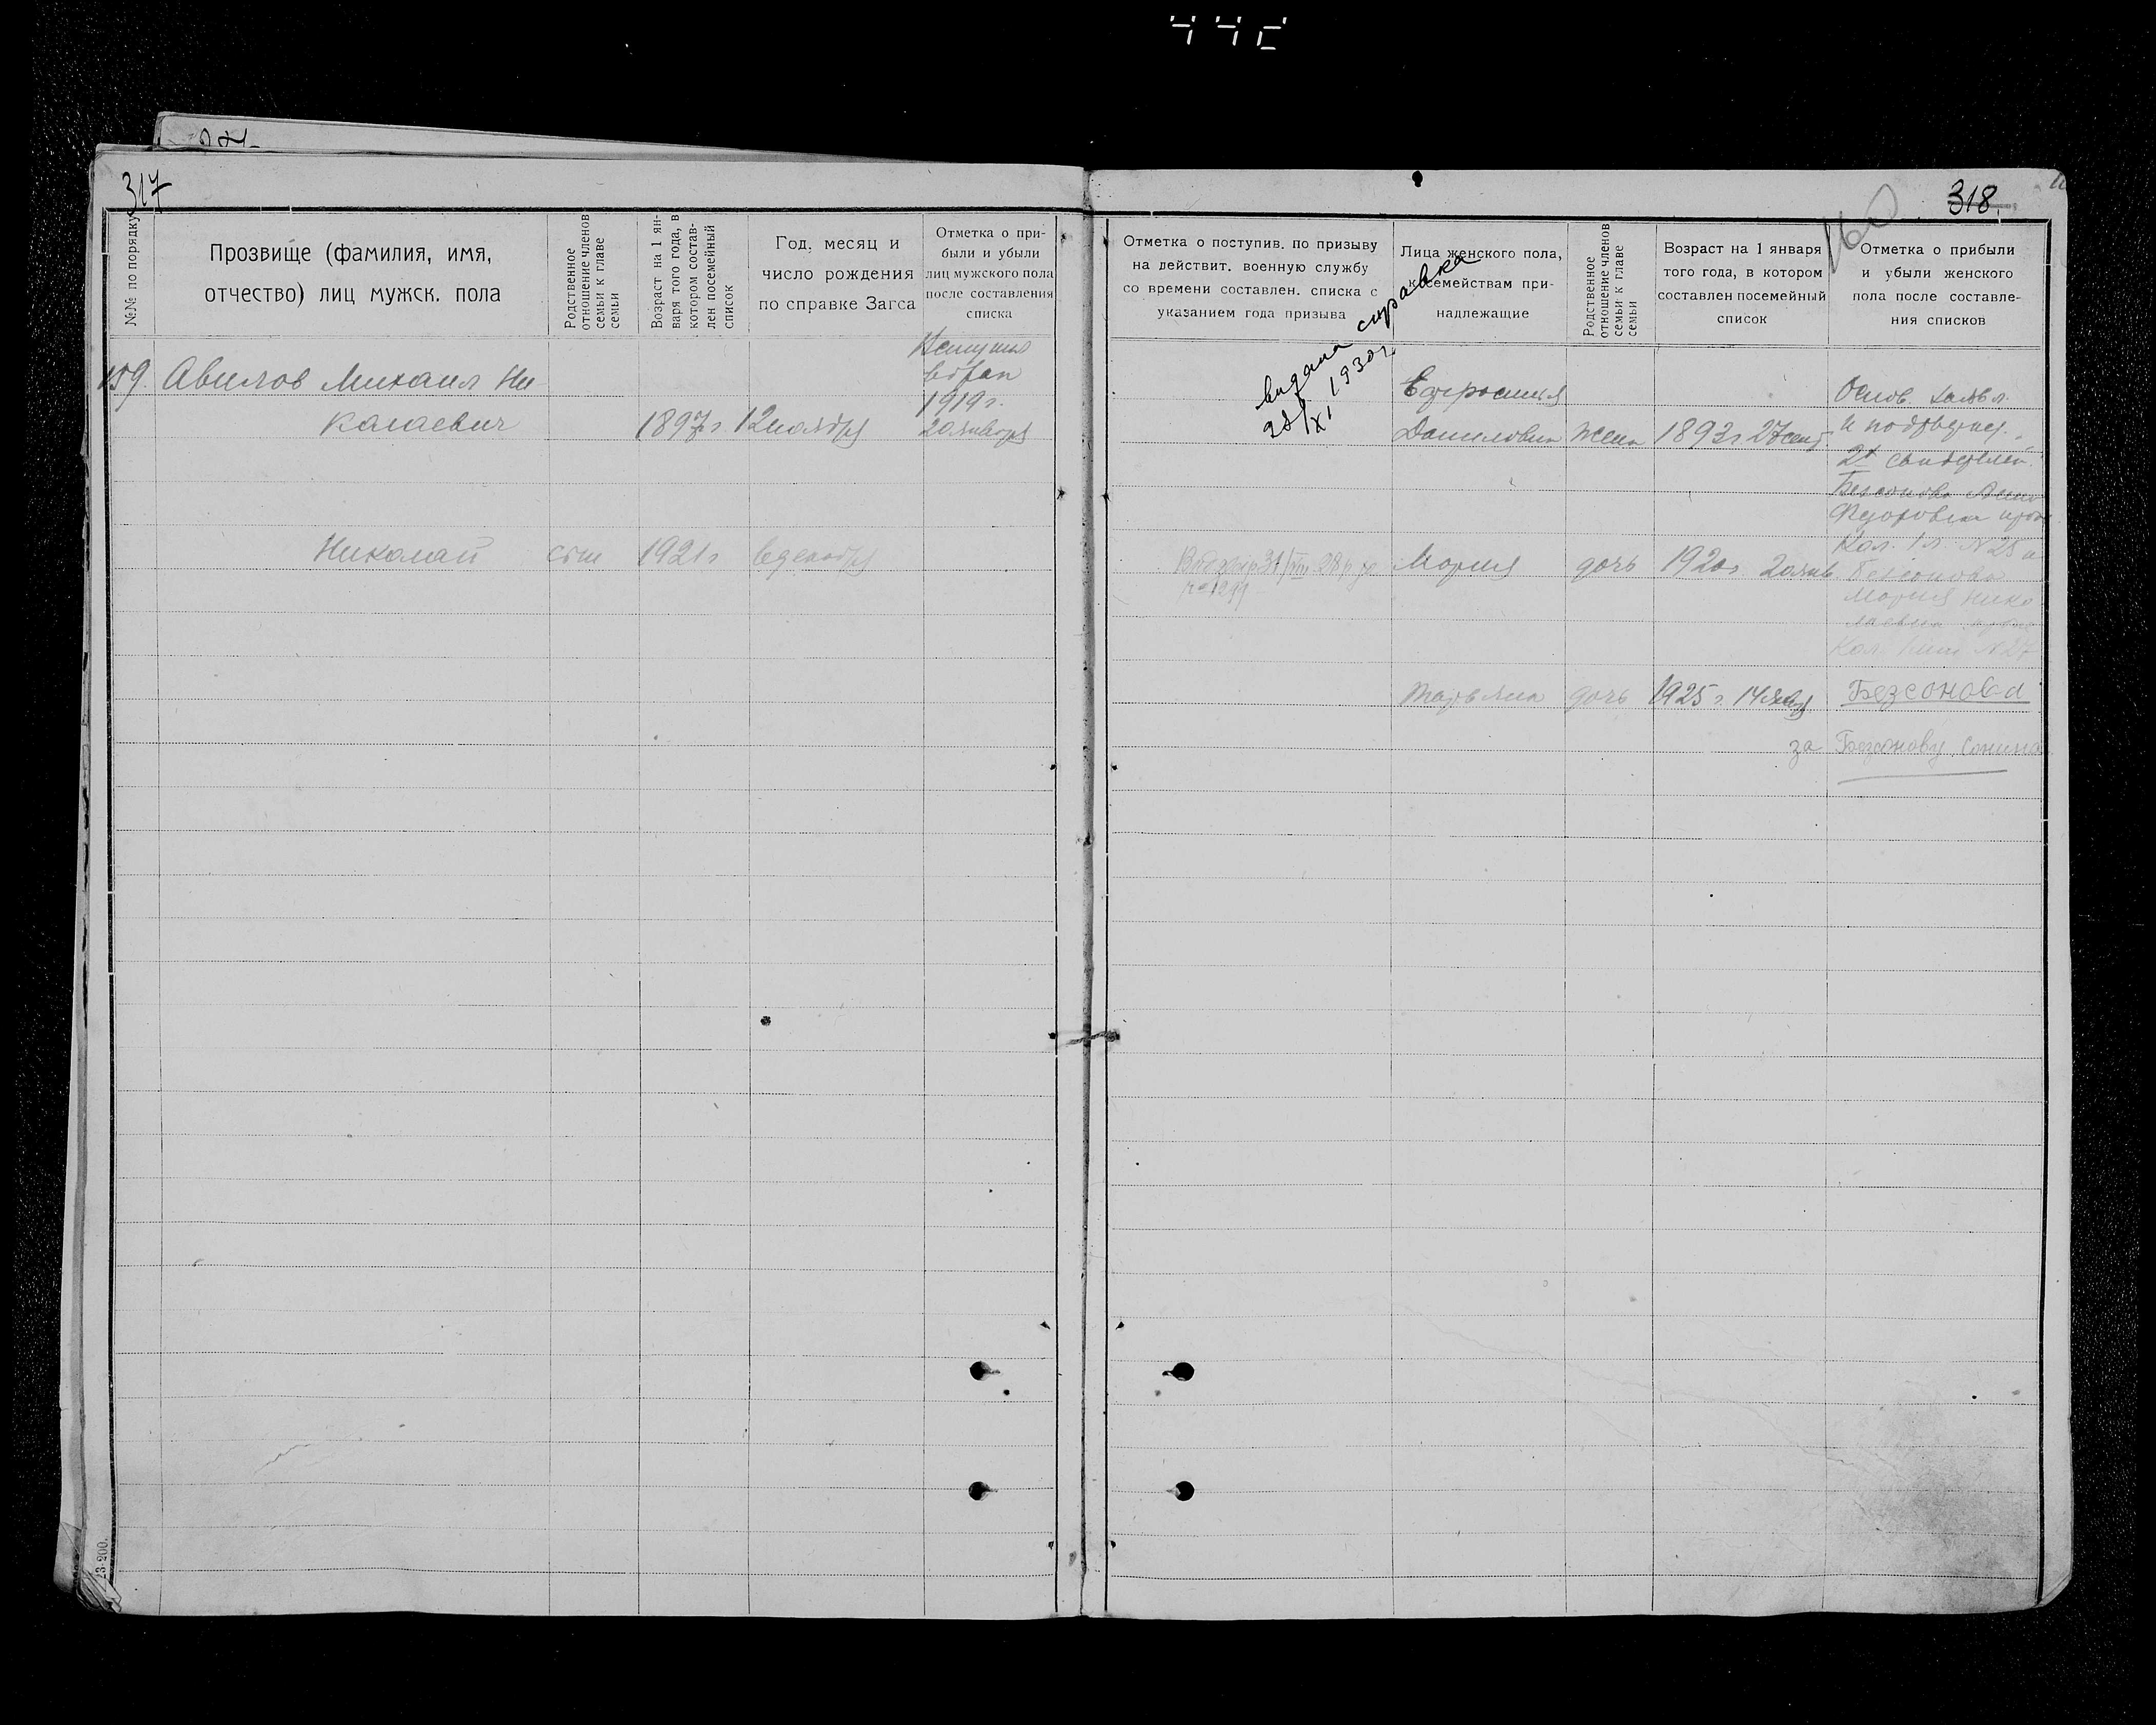 317
№№ по порядку
Прозвище (фамилия, имя,
отчество) лиц мужск. пола
Родственное
отношение членов
семьи к главе
семьи
Возраст на 1 ян-
варя того года, в
котором состав-
лен посемейный
список
Год, месяц и
число рождения
по справке Загса
Отметка о при-
были и убыли
лиц мужского пола
после составления
списка
159. Авилов Михаил Ни-
калаевич 1897 г 12 ноября
1919 г.
20 января
Николай сын 1921 г декабря
23-200.
318.
160
Отметка о поступив. по призыву
на действит. военную службу
со времени составлен. списка с
указанием года призыва
Лица женского пола,
к семействам при-
надлежащие
Родственное
отношение членов
семьи к главе
семьи
Возраст на 1 января
того года, в котором
составлен посемейный
список
Отметка о прибыли
и убыли женского
пола после составле-
ния списков
выдана справка
28/XI 1930 г.
Ефросинья
Даниловна жена 1893 г. 27 сент
Основ. заявл.
и подтвержд.
2х свидетелей
Безсонова
Федоровна
Кол. 1 л. N 25 и
Мария дочь 1920 г. 20 янв.
Безсонова
Мария Нико
лаевна
Кол. N 27
дочь 1925 г. 14 янв
Безсонова
за Безсонову